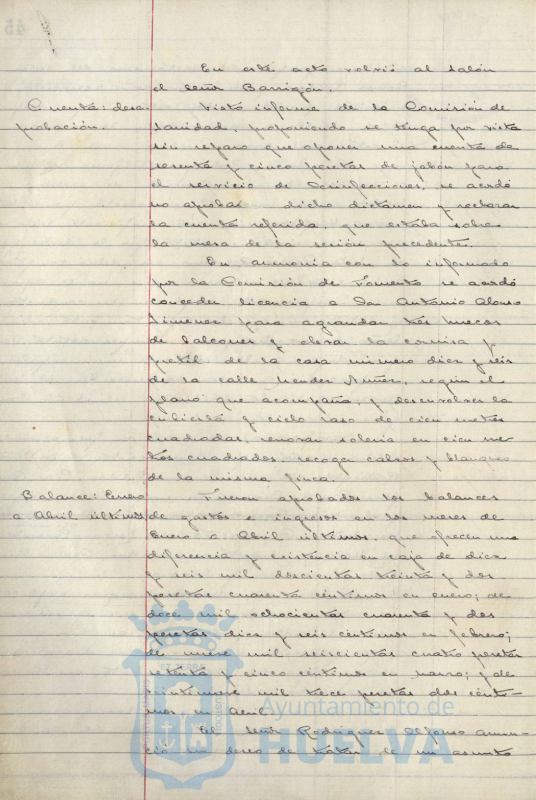 En este acto volvió al salón
el Señor Barrigón.
Cuenta: desa-
probación.
Visto informe de la Comisión de
Sanidad, proponiendo se tenga por vista
sin reparo que oponer una cuenta de
sesenta y cinco pesetas de jabón para
el servicio de Desinfecciones, se acordó
no aprobar dicho dictamen y rechazar
la cuenta referida, que estaba sobre
la mesa de la sesión precedente.
En armonía con lo informado
por la Comisión de Fomento se acordó
conceder licencia a Don Antonio Alonso
Jimenez para agrandar tres huecos
de balcones y elevar la cornisa y
pretil de la casa número diez y seis
de la calle Mendez Nuñez, según el
plano que acompaña, y desenvolver la
cubierta y cielo raso de cien metros
cuadrados, renovar solería en cien me-
tros cuadrados, recoger calizos y blanqueo
de la misma finca.
Balance: Enero
a Abril últimos
Fueron aprobados los balances
de gastos e ingresos en los meses de
Enero a Abril últimos, que ofrecen una
diferencia y existencia en caja de diez
y seis mil doscientas treinta y dos
pesetas cuarenta céntimos en enero; de
doce mil ochocientas cuarenta y dos
pesetas diez y seis céntimos en febrero;
de nueve mil seiscientas cuatro pesetas
setenta y cinco céntimos en marzo; y de
veintinueve mil trece pesetas dos cénti-
mos en abril.
El Señor Rodriguez Alfonso anun-
ció su deseo de tratar de un asunto
Ayuntamiento de
HUELVA